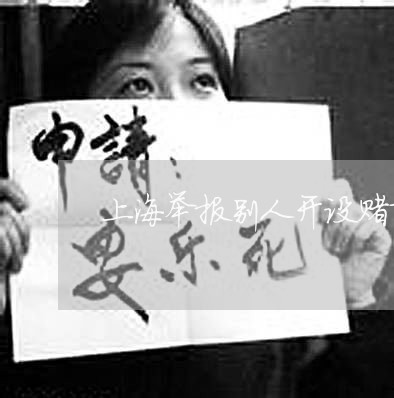 申請：
上海举报别人开设赌
安乐死